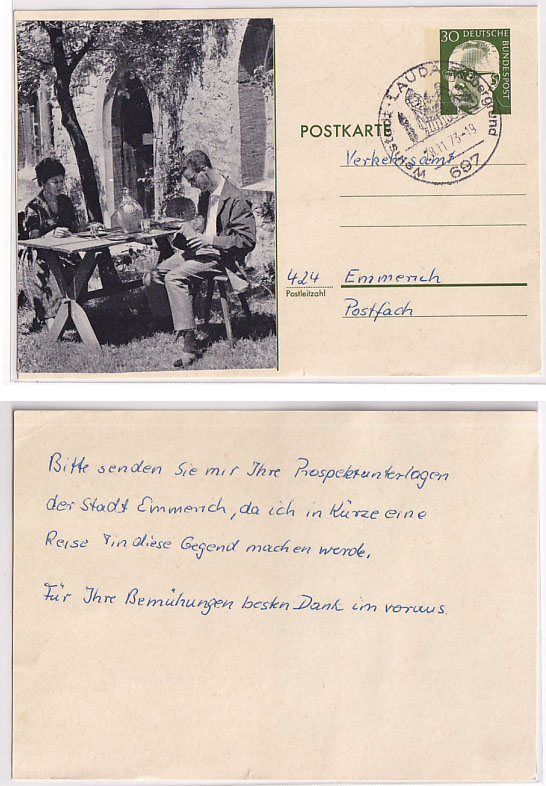 30 DEUTSCHE BUNDESPOST
LAUDA
Weinstadt
697
28.11.73-19
POSTKARTE
Verkehrsamt
424 Emmerich
Postleitzahl
Postfach
Bitte senden Sie mir Ihre Prospektunterlagen
der Stadt Emmerich, da ich in Kürze eine
Reise in diese Gegend machen werde.
Für Ihre Bemühungen besten Dank im voraus.